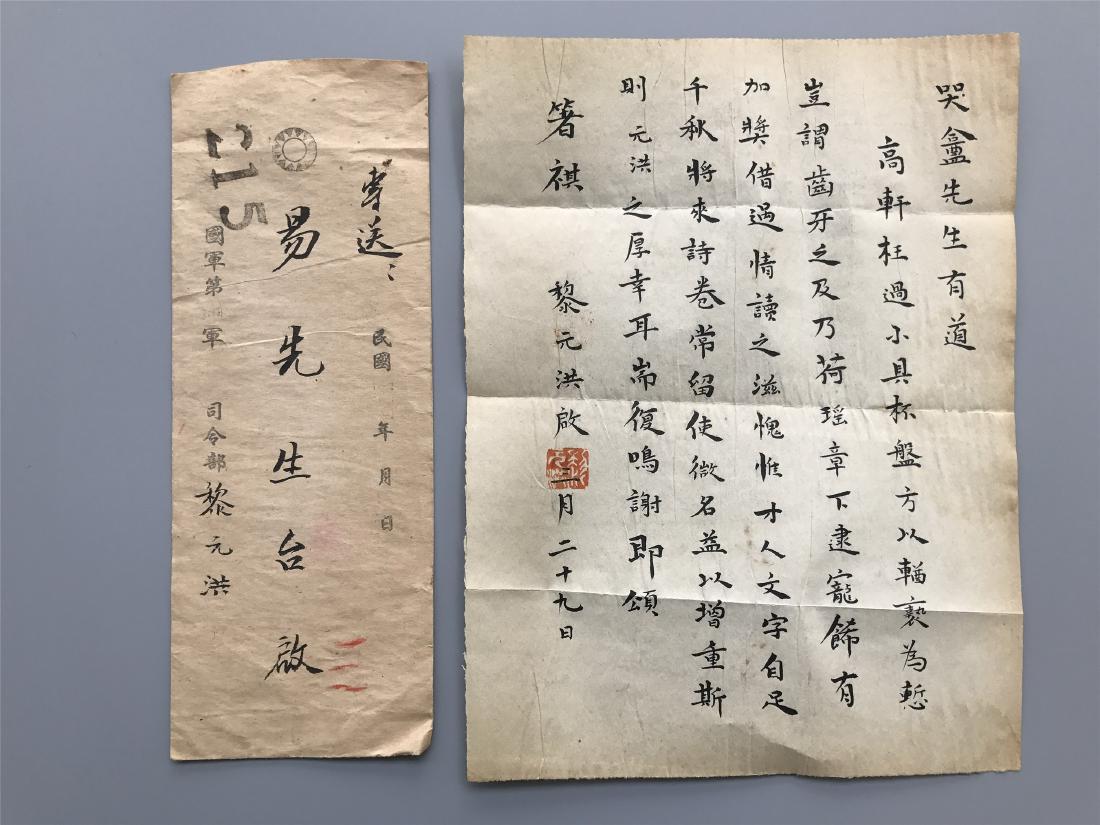 哭盦先生有道
高軒枉過小具杯盤方以輶褻為慙
豈謂齒牙之及乃荷瑤章下逮寵餙有
加獎借過情讀之滋愧惟才人文字自足
千秋將來詩卷常留使微名益以增重斯
則元洪之厚幸耳耑復鳴謝即頌
箸祺 黎元洪啟 三月二十九日
專送
民國 年 月 日
易先生台啟
國軍第 軍 司令部 黎元洪
515